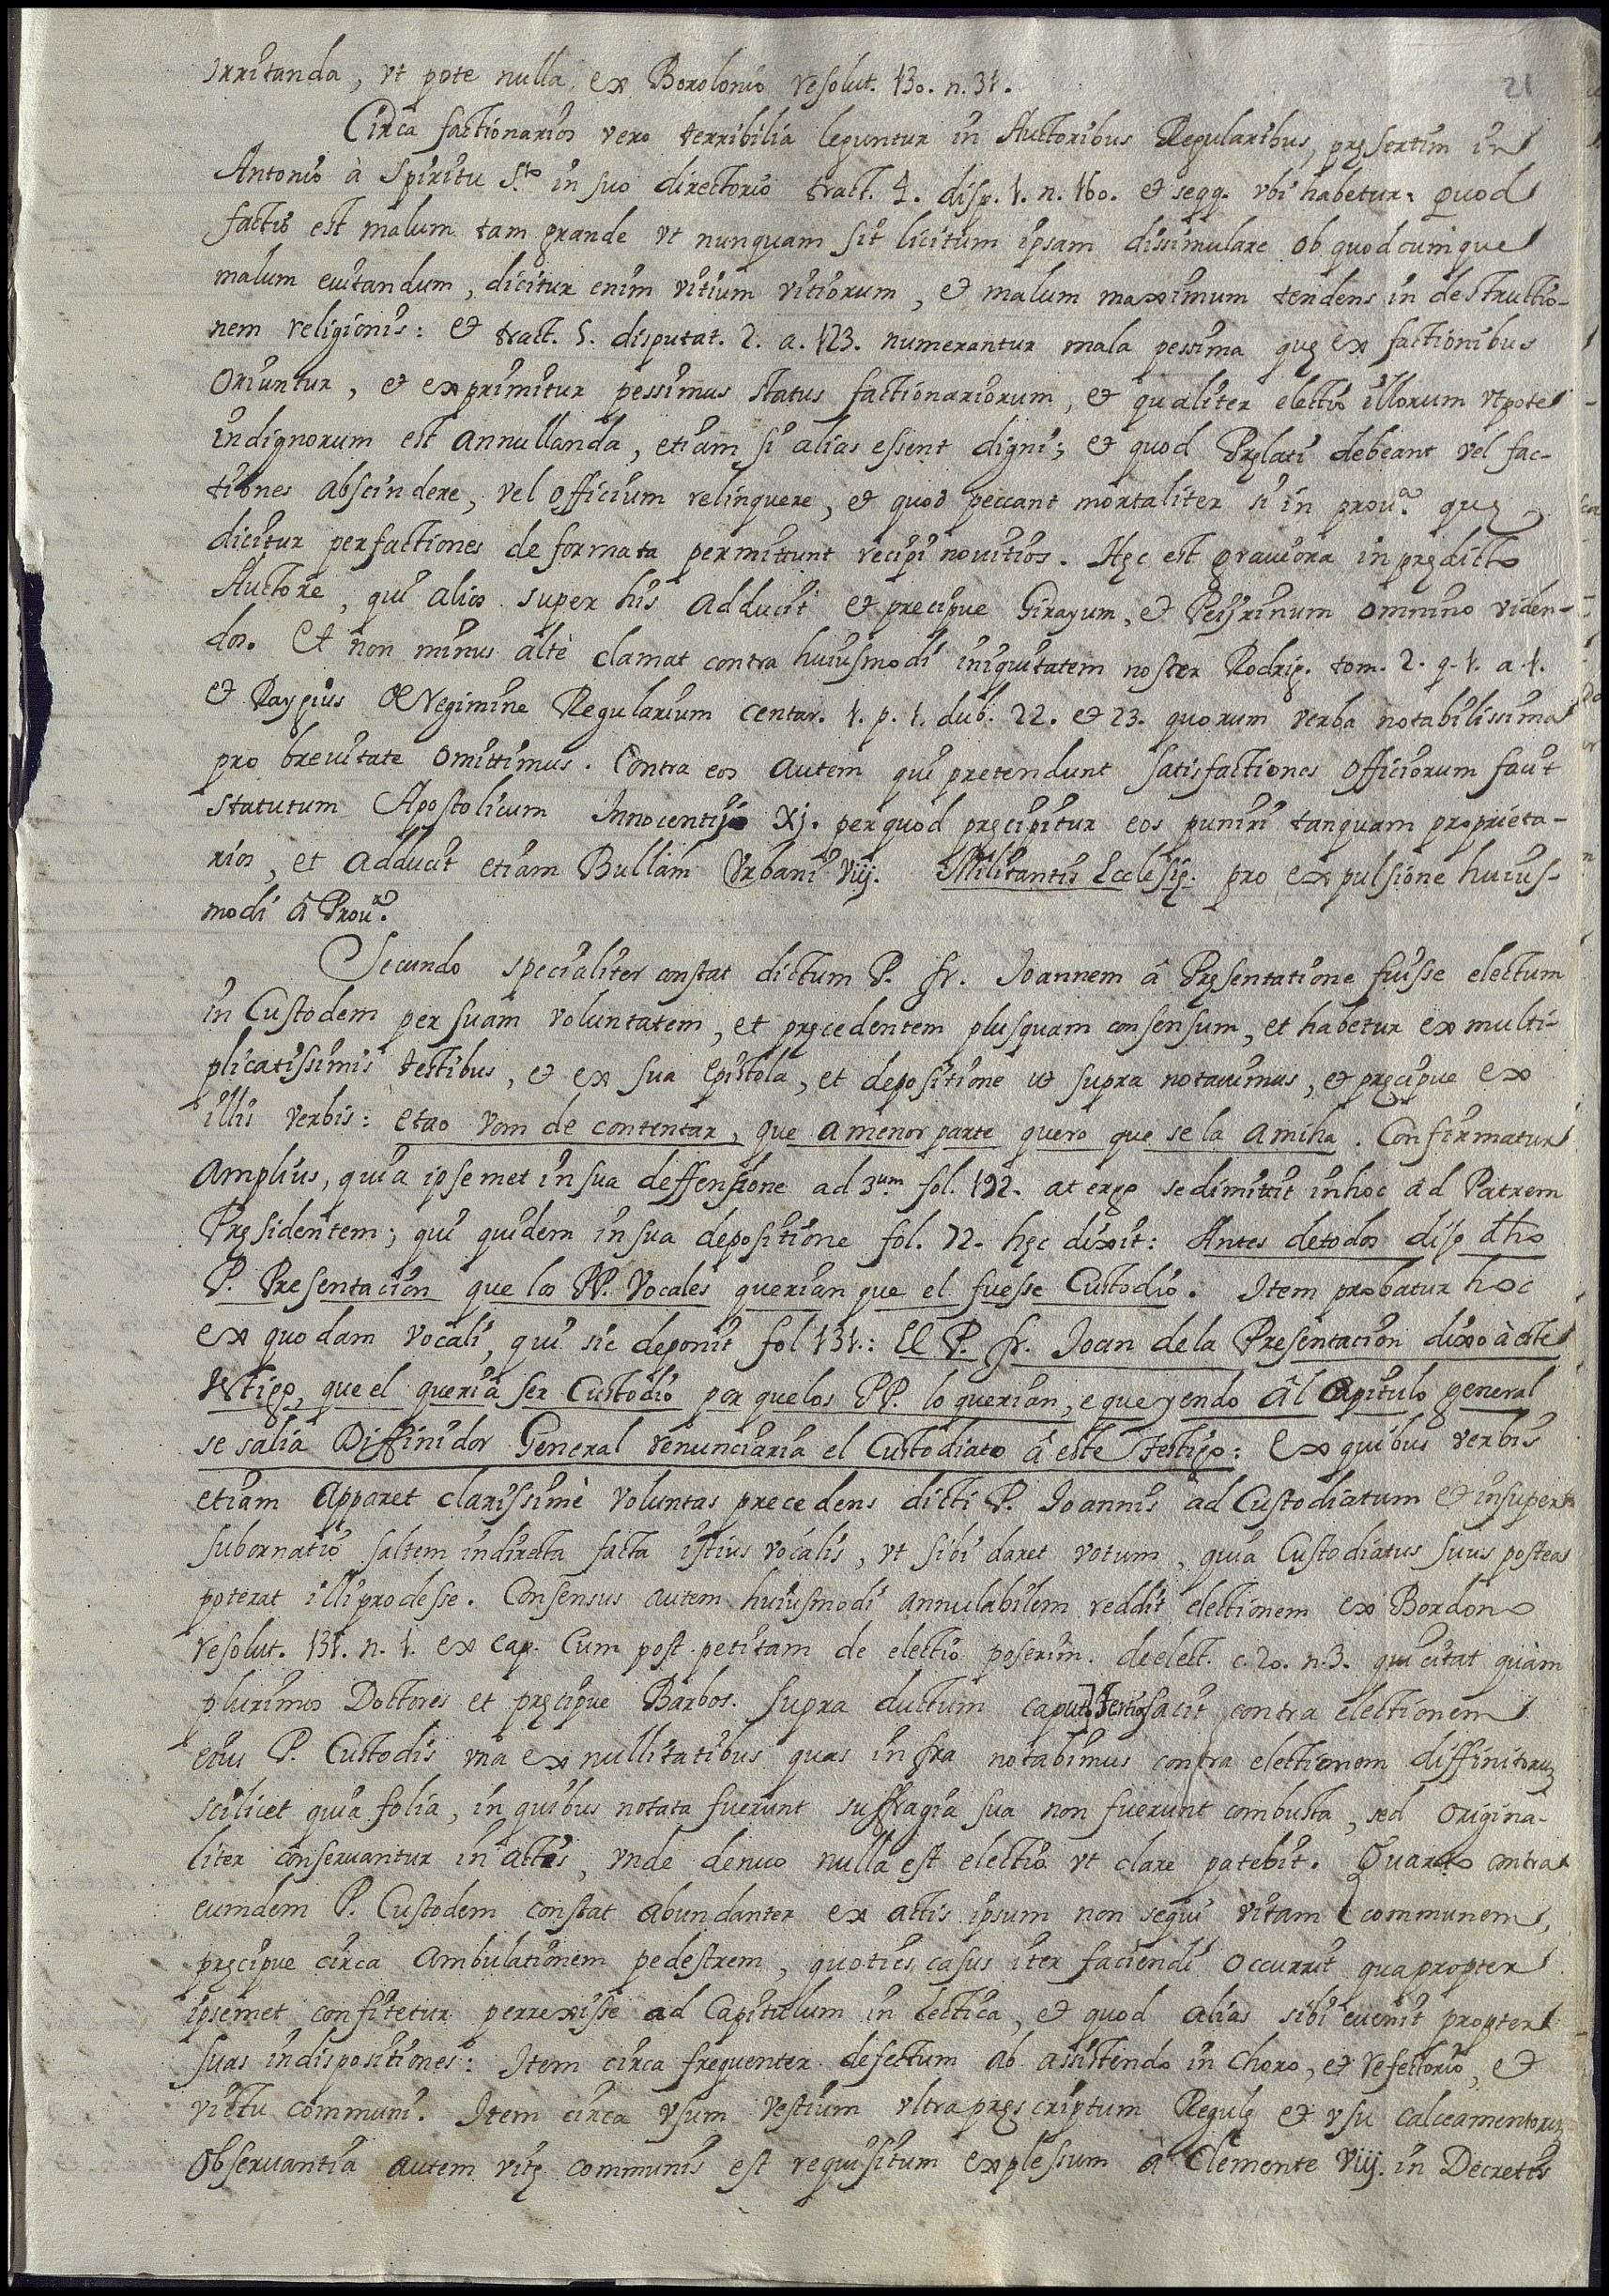 21
irritanda, vt pote nulla ex Borolonio resolut. 130. n. 31.
Circa factionarios vero terribilia leguntur in Auctoribus Regularibus, pręsertim in
Antonio à Spiritu S.to in suo directorio tract. 4. disp. 1. n. 160. et seqq. vbi habetur, quod
factio est malum tam grande vt nunquam sit licitum ipsam dissimulare ob quodcumque
malum euitandum, dicitur enim vitium vitiorum, et malum maximum tendens in destructio-
nem religionis: et tract. 5. disputat. 2. a. 123. numerantur mala pessima quę ex factionibus
oriuntur, et exprimitur pessimus status factionariorum, et qualiter electio illorum vtpote
indignorum est annullanda, etiam si alias essent digni; et quod Pręlati debeant vel fac-
tiones abscindere, vel officium relinquere, et quod peccant mortaliter si in prou.a quę
dicitur per factiones deformata permittunt recipi nouitios. Hęc est grauiora in prędicto
Auctore, qui alios super his adducit et precipue Girayum, et Peijrinum omnino viden-
dos. Et non minus altè clamat contra huiusmodi iniquitatem noster Rodrig. tom. 2. q. 1. a. 1.
et Raygius de regimine Regularium centur. 1. p. 1. dub. 22. et 23. quorum verba notabilissima
pro breuitate omittimus. Contra eos autem qui pretendunt satisfactiones officiorum faut
statutum Apostolicum Innocentij Xj. per quod pręcipitur eos puniri tanquam proprieta-
rios, et adducit etiam Bullam Vrbani viij. Militantis Ecclesię. pro expulsione huius-
modi â Prou.a
Secundo specialiter constat dictum P. fr. Joannem â Pręsentatione fuisse electum
in Custodem per suam voluntatem, et pręcedentem plusquam consensum, et habetur ex multi-
plicatissimis testibus, et ex sua epistola, et depositione ut supra notauimus, et pręcipue ex
illis verbis: etao vom de contentar, que a menor parte quero que se la a miha. Confirmatur
amplius, quia ipsemet in sua deffensione ad 3.um fol. 192. at ergo se dimittit in hoc ad Patrem
Pręsidentem; qui quidem in sua depositione fol. 72. hęc dixit: Antes de todos diso dho
P. Presentacion que los PP. Vocales querian que el fuesse Custodio. Item probatur hoc
ex quodam vocali, qui sic deponit fol 131.: El P. fr. Joan de la Presentacion dixo à este
testigo, que el queria ser Custodio per que los PP. lo querian, e que yendo âl Capitulo general
se salia Diffinidor General renunciaria el Custodiato â este testigo: Ex quibus verbis
etiam apparet clarissimè voluntas precedens dicti P. Joannis ad Custodiatum et insuper
subornatio saltem indirecta facta istius vocalis, vt sibi daret votum, quia Custodiatus suus postea
poterat illi prodesse. Consensus autem huiusmodi annulabilem reddit electionem ex Bordono
resolut. 131. n. 1. ex cap. Cum post petitam de electio poserim. de elect. c. 20. n. 3. qui citat quàm
plurimos Doctores et pręcipue Barbos. supra ductum caput. Tertio facit contra electionem
eius P. Custodis vna ex nullitatibus quas infra notabimus contra electionem diffinitoruz
scilicet quia folia, in quibus notata fuerunt suffragia sua non fuerunt combusta, sed origina-
liter conseruantur in actis, vnde denuo nulla est electio vt clare patebit. Quarto contra
eumdem P. Custodem constat abundanter ex actis ipsum non sequi vitam communem,
pręcipue circa ambulationem pedestrem, quoties casus iter faciendi occurrit quapropter
ipsemet confitetur perrexisse ad Capitulum in lectica, et quod alias sibi euenit propter
suas indispositiones: Item circa frequenter defectum ab assistendo in choro, et refectorio, et
victu communi. Item circa vsum vestium vltra pręscriptum Regulę et vsu calceamentoruz
Obseruantia autem vitę communis est requisitum explessum à Clemente viij. in Decretis